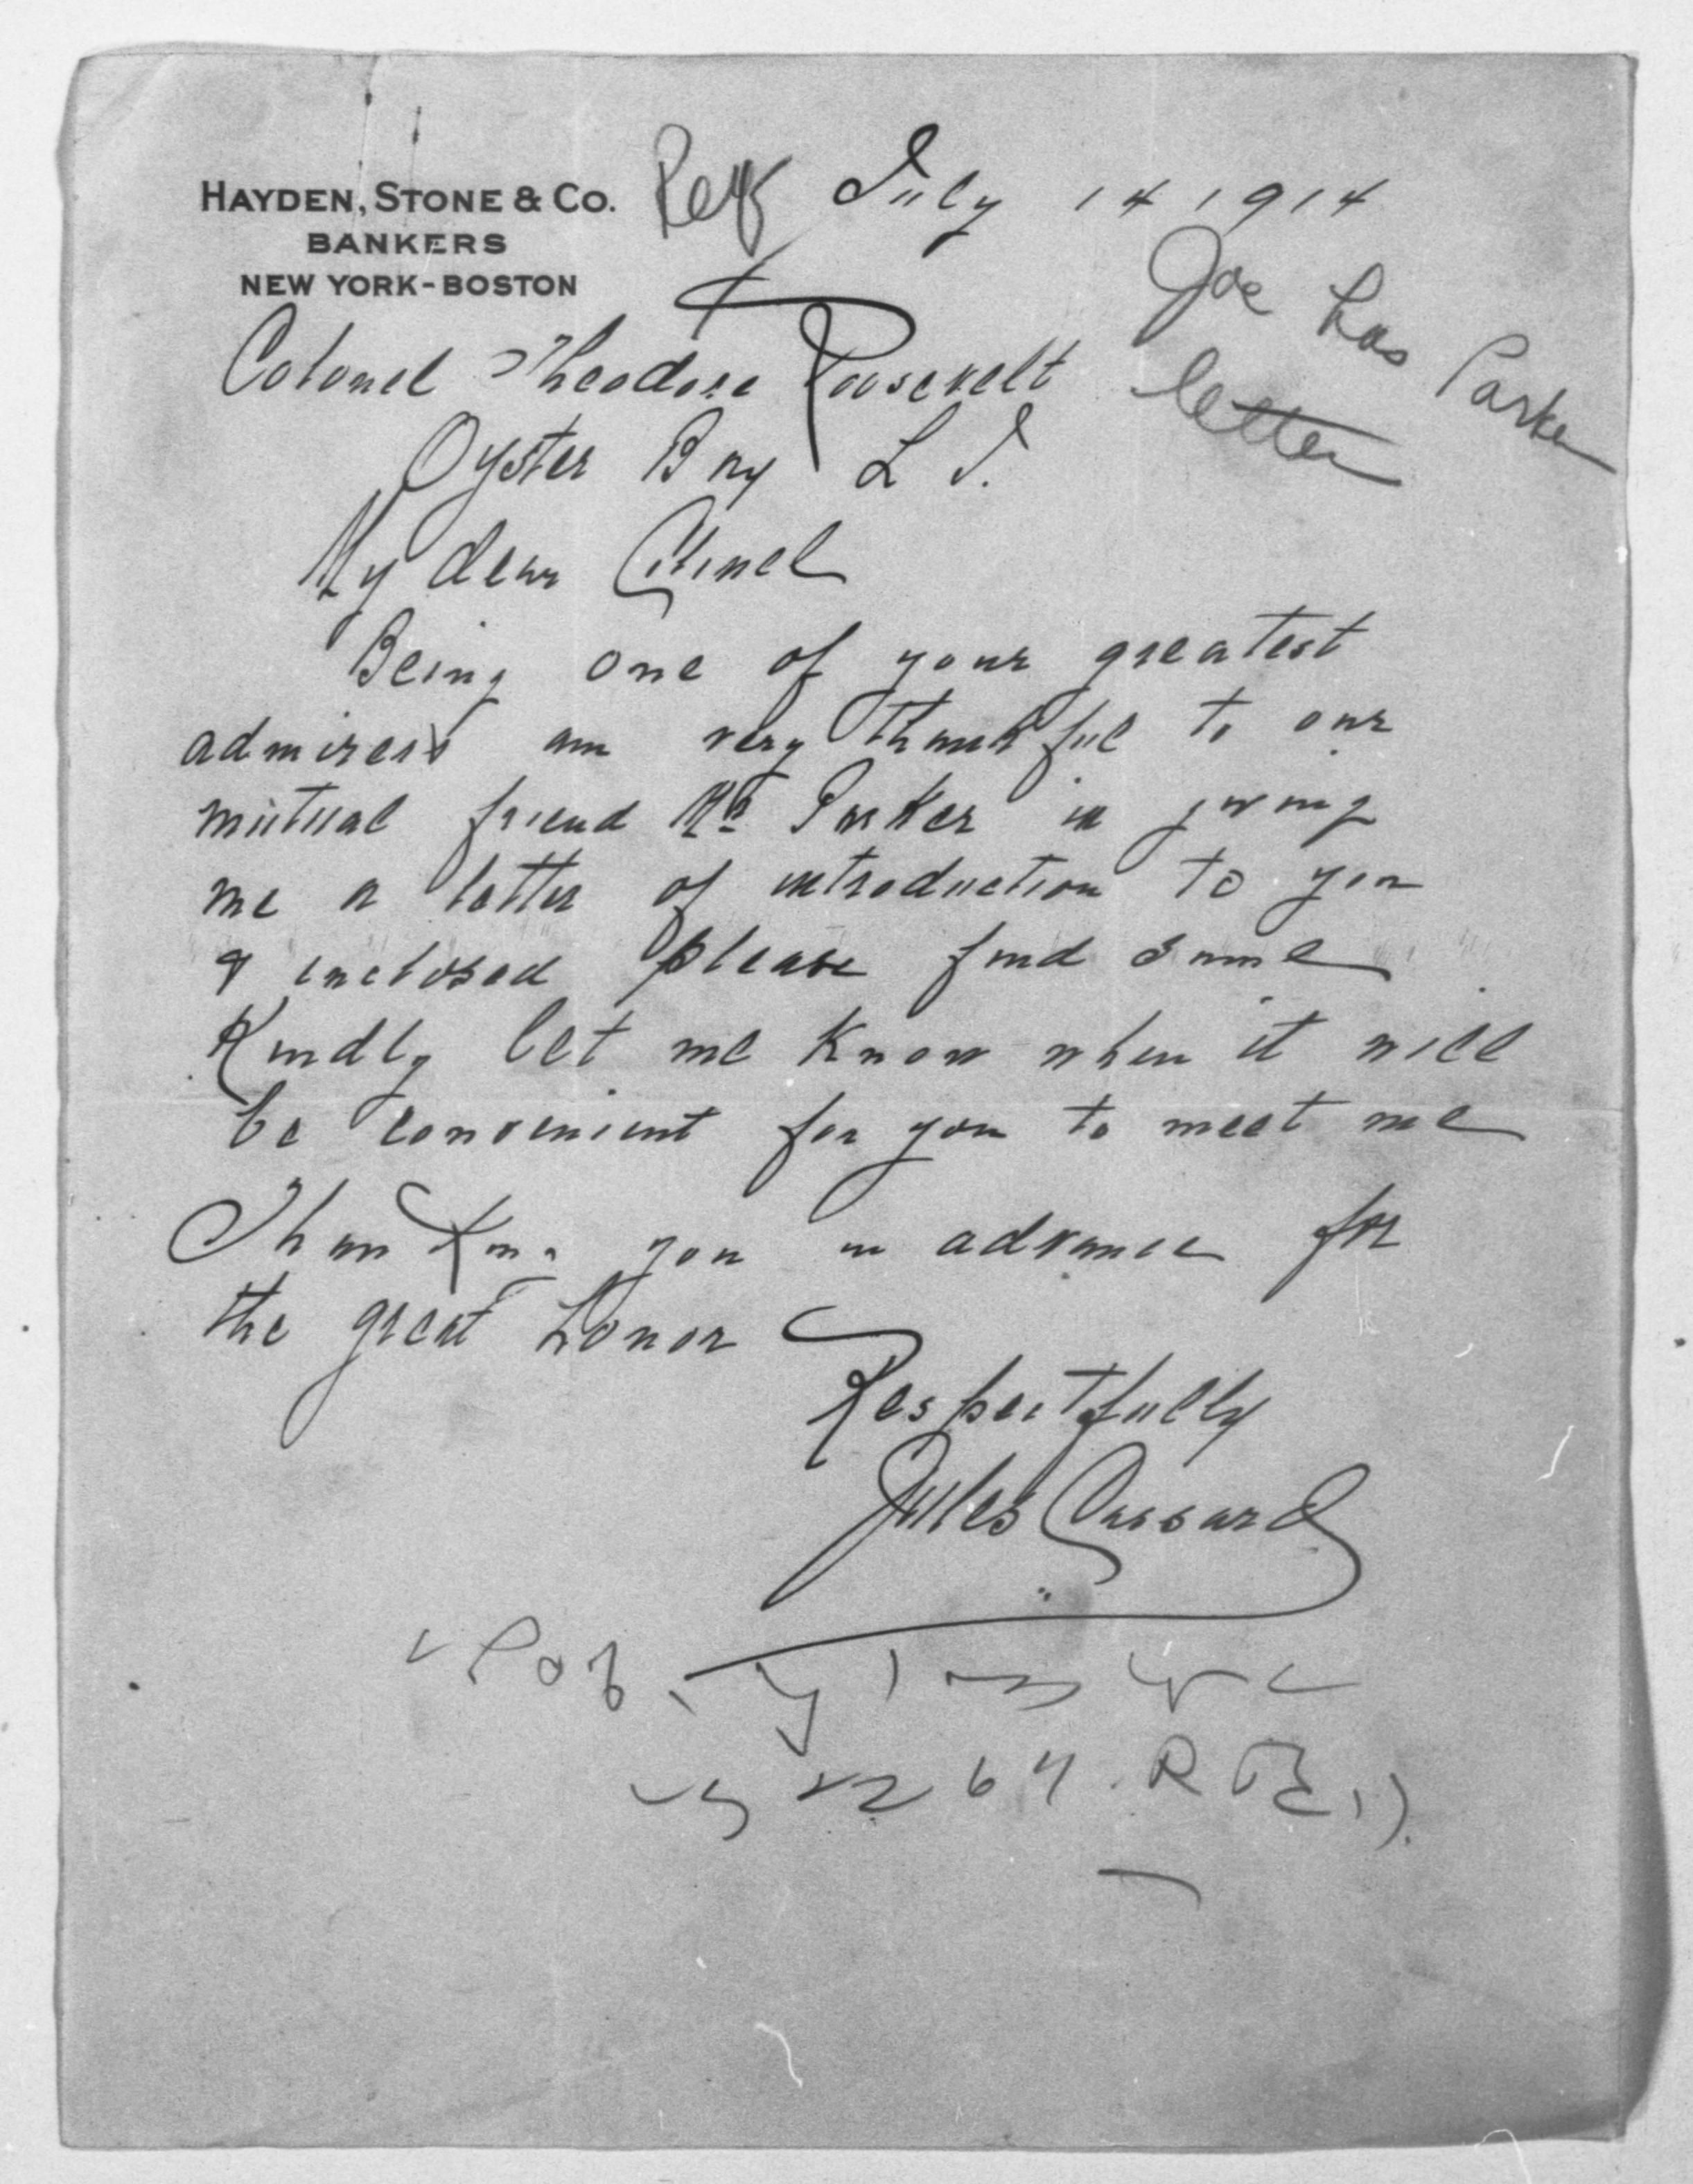 HAYDEN, STONE & CO.
BANKERS
NEW YORK-BOSTON
July 14 1914
Joe has Parker
letter
Colonel Theodore Roosevelt
Oyster Bay L I.
My dear Colonel
Being one of your greatest
admirers am very thankful to our
mutual friend Mr Parker in giving
me a letter of introduction to you
& inclosed please find same
Kindly let me know when it will
be convenient for you to meet me
Thanking you in advance for
the great honor
Respectfully
Jules Cassard